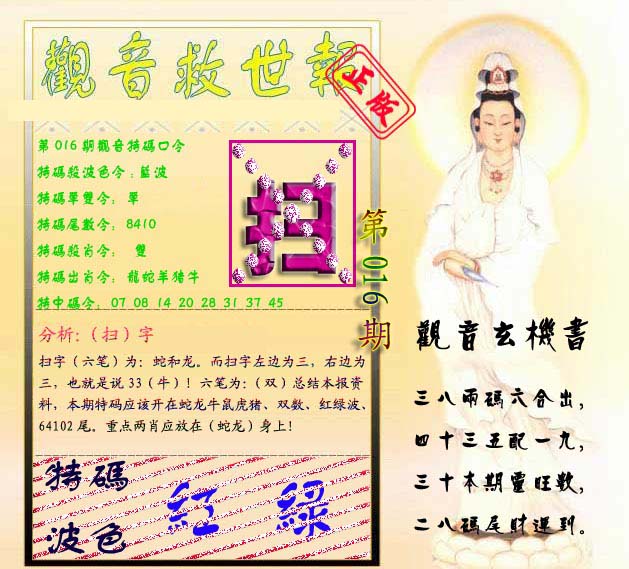 觀音救世報
正版
第016期觀音特碼口令
特碼殺波色令:藍波
特碼單雙令: 單
特碼尾數令: 8410
特碼殺肖令: 雙
特碼出肖令: 龍蛇羊猪牛
特中碼令: 07 08 14 20 28 31 37 45
扫
第016期
分析:（扫）字
扫字（六笔）为：蛇和龙。而扫字左边为三，右边为
三，也就是说 33（牛）！六笔为：（双）总结本报资
料，本期特码应该开在蛇龙牛鼠虎猪、双数、红绿波、
64102 尾。重点两肖应放在（蛇龙）身上！
特碼
波色
紅 綠
觀音玄機書
三八兩碼六合出,
四十三五配一九,
三十本期靈旺數,
二八碼尾財運到。